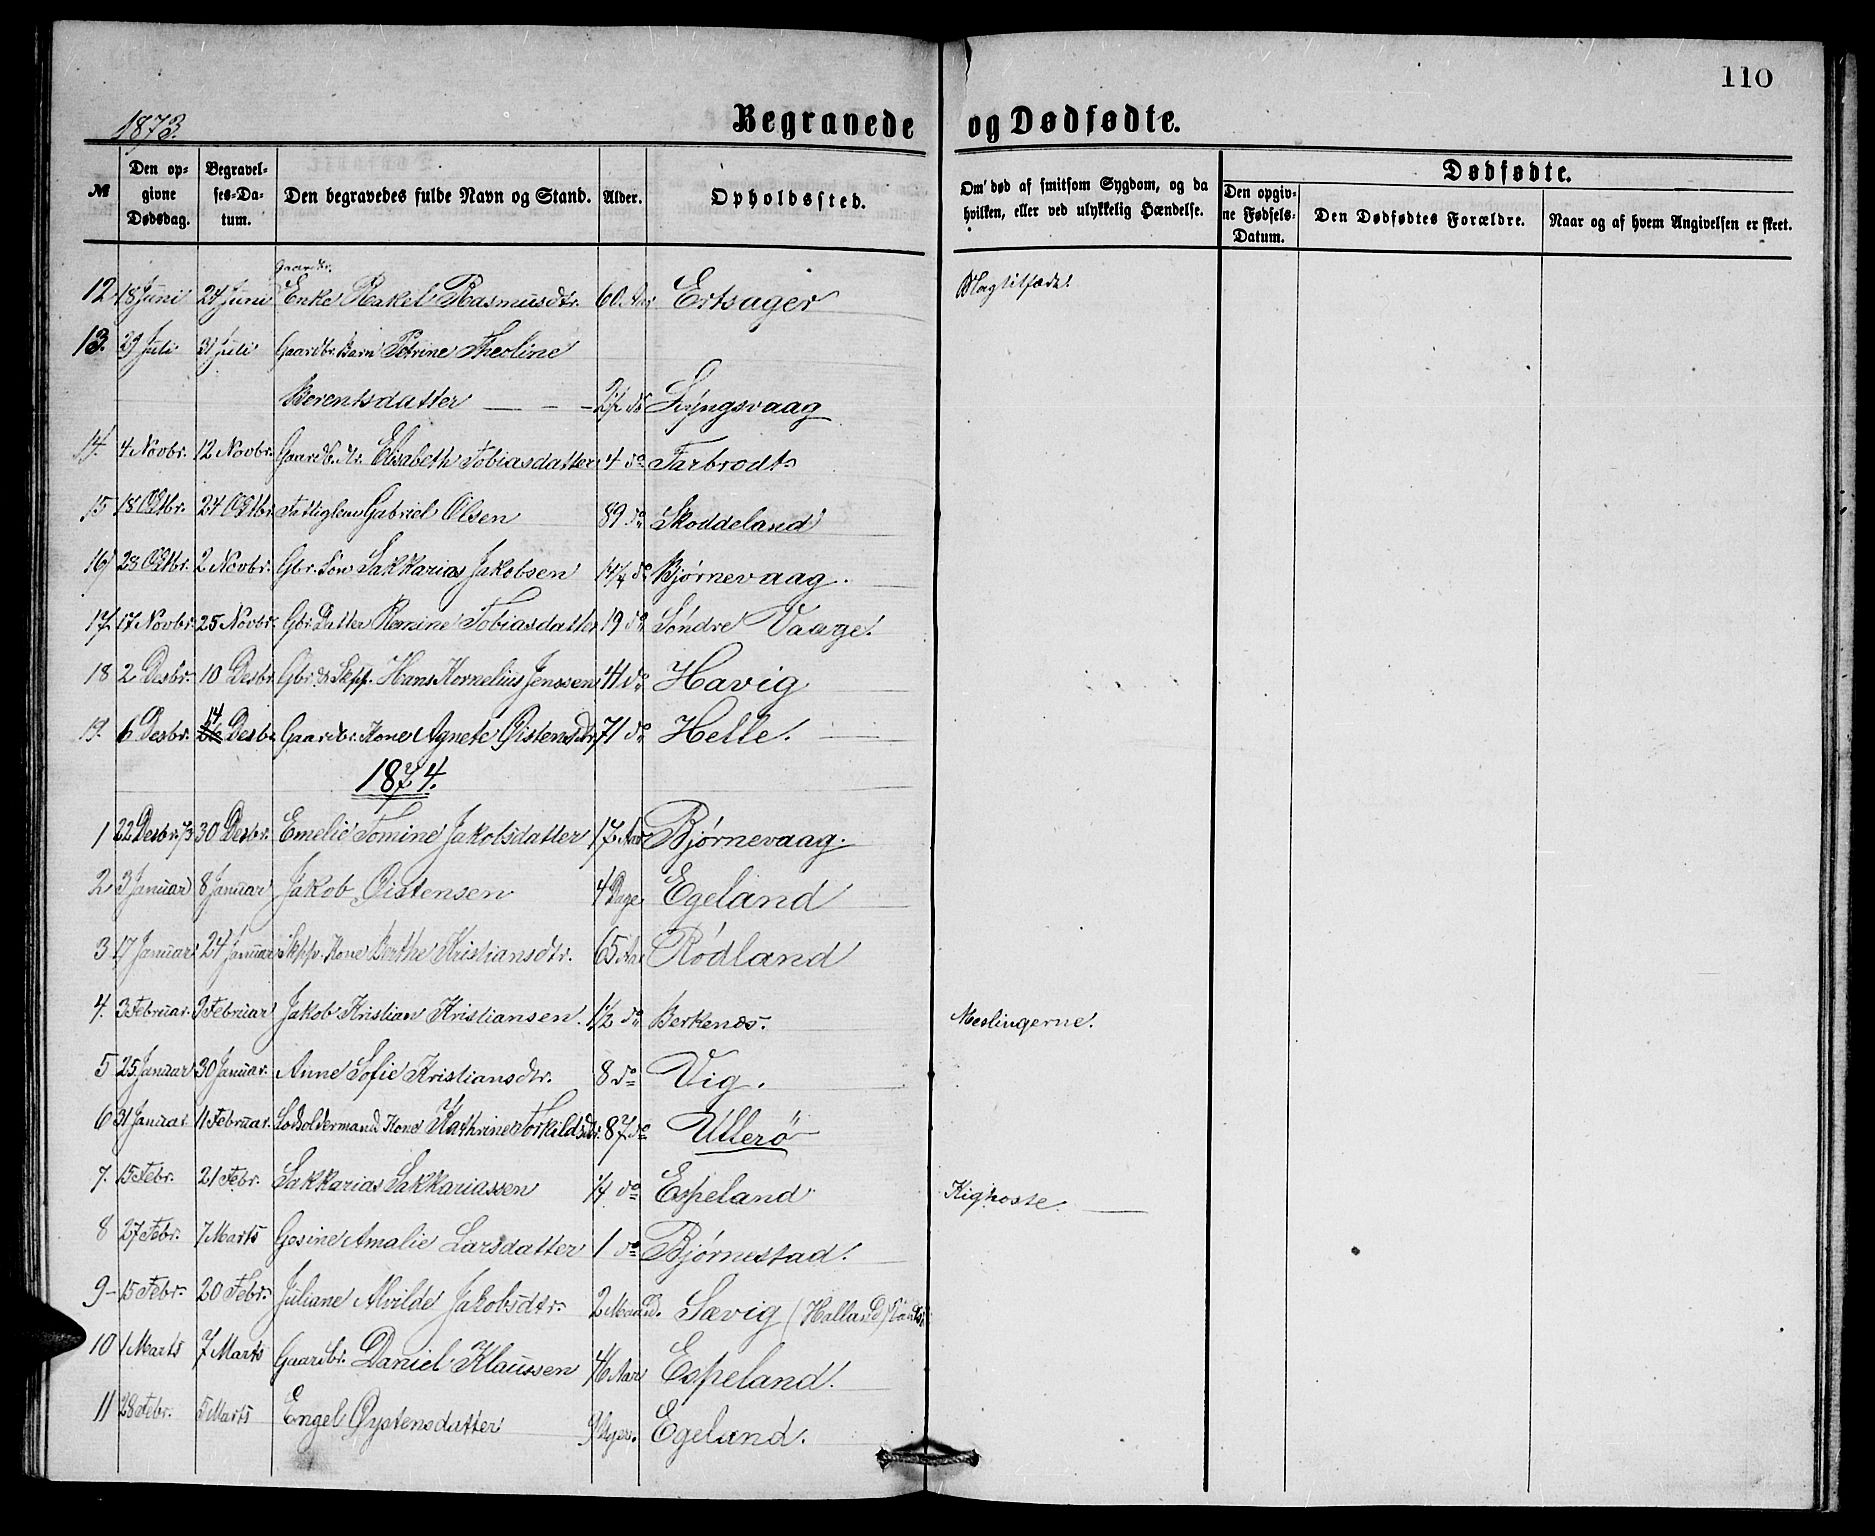 110
1873. Begravede og Dødfødte.
№ Den opgivne Dødsdag. Begravelses-Datum. Den begravedes fulde Navn og Stand. Alder. Opholdssted. Om død af smitsom Sygdom, og da hvilken, eller ved ulykkelig Hændelse. Dødfødte. Den opgivne Fødsels-Datum. Den Dødfødtes Forældre. Naar og af hvem Angivelsen er skeet.
Gaardbr.
12 18 Juni 24 Juni Enke Rakel Rasmusdtr. 60 Aar Ertsager
13. 29 Juli 31 Juli Gaardbr. Barn Petrine Theoline
Berentsdatter — - — 2½ do Lyngsvaag
14. 4 Novbr. 12 Novbr. Gaardb. Dr. Elisabeth Tobiasdatter 4 do Farbrodt
15 18 Oktbr. 24 Oktbr. Fattiglem Gabriel Olsen 89 do Skoddeland
16 28 Oktbr. 2 Novbr. Gbr. Søn Sakkarias Jakobsen 14¼ do Bjørnevaag.
17. 17 Novbr. 25 Novbr. Gbr. Datter Remine Tobiasdatter 19 do Søndre Vaage.
18 2 Desbr. 10 Desbr. Gbr. & Skpp. Hans Kornelius Jenssen 41 do Havig
19. 6 Desbr. 14 Desbr. Gaardbr. Kone Agnete Øistensdtr. 71 do Helle.
1874.
1 22 Desbr. 73 30 Desbr. Emelie Tomine Jakobsdatter 17 Aar Bjørnevaag.
2 3 Januar 8 Januar Jakob Øistensen 4 Dage Egeland
3 17 Januar 24 Januar Skpp. Kone Berthe Kristiansdtr. 65 Aar Rødland
4. 3 Februar. 9 Februar Jakob Kristian Kristiansen. 1½ do Berkenæs. Meslingerne.
5 25 Januar 30 Januar. Anne Sofie Kristiansdtr. 8 do Vig.
6 31 Januar. 11 Februar. Lodsoldermand Kone Kathrine Torkildsdtr. 87 do Ullerø
7. 15 Febr. 21 Febr. Sakkarias Sakkariassen ¼ do Espeland Kighoste.
8 27 Febr. 7 Marts Gesine Amalie Larsdatter 1 do Bjørnestad.
9 - 15 Febr. 20 Febr. Juliane Alvilde Jakobsdtr. 2 Maaned. Sævig (Halland)
10 1 Marts 7 Marts Gaardbr. Daniel Klaussen 46 Aar Espeland.
11 28 Febr. 5 Marts Engel Øystensdatter 9 Uger. Egeland.